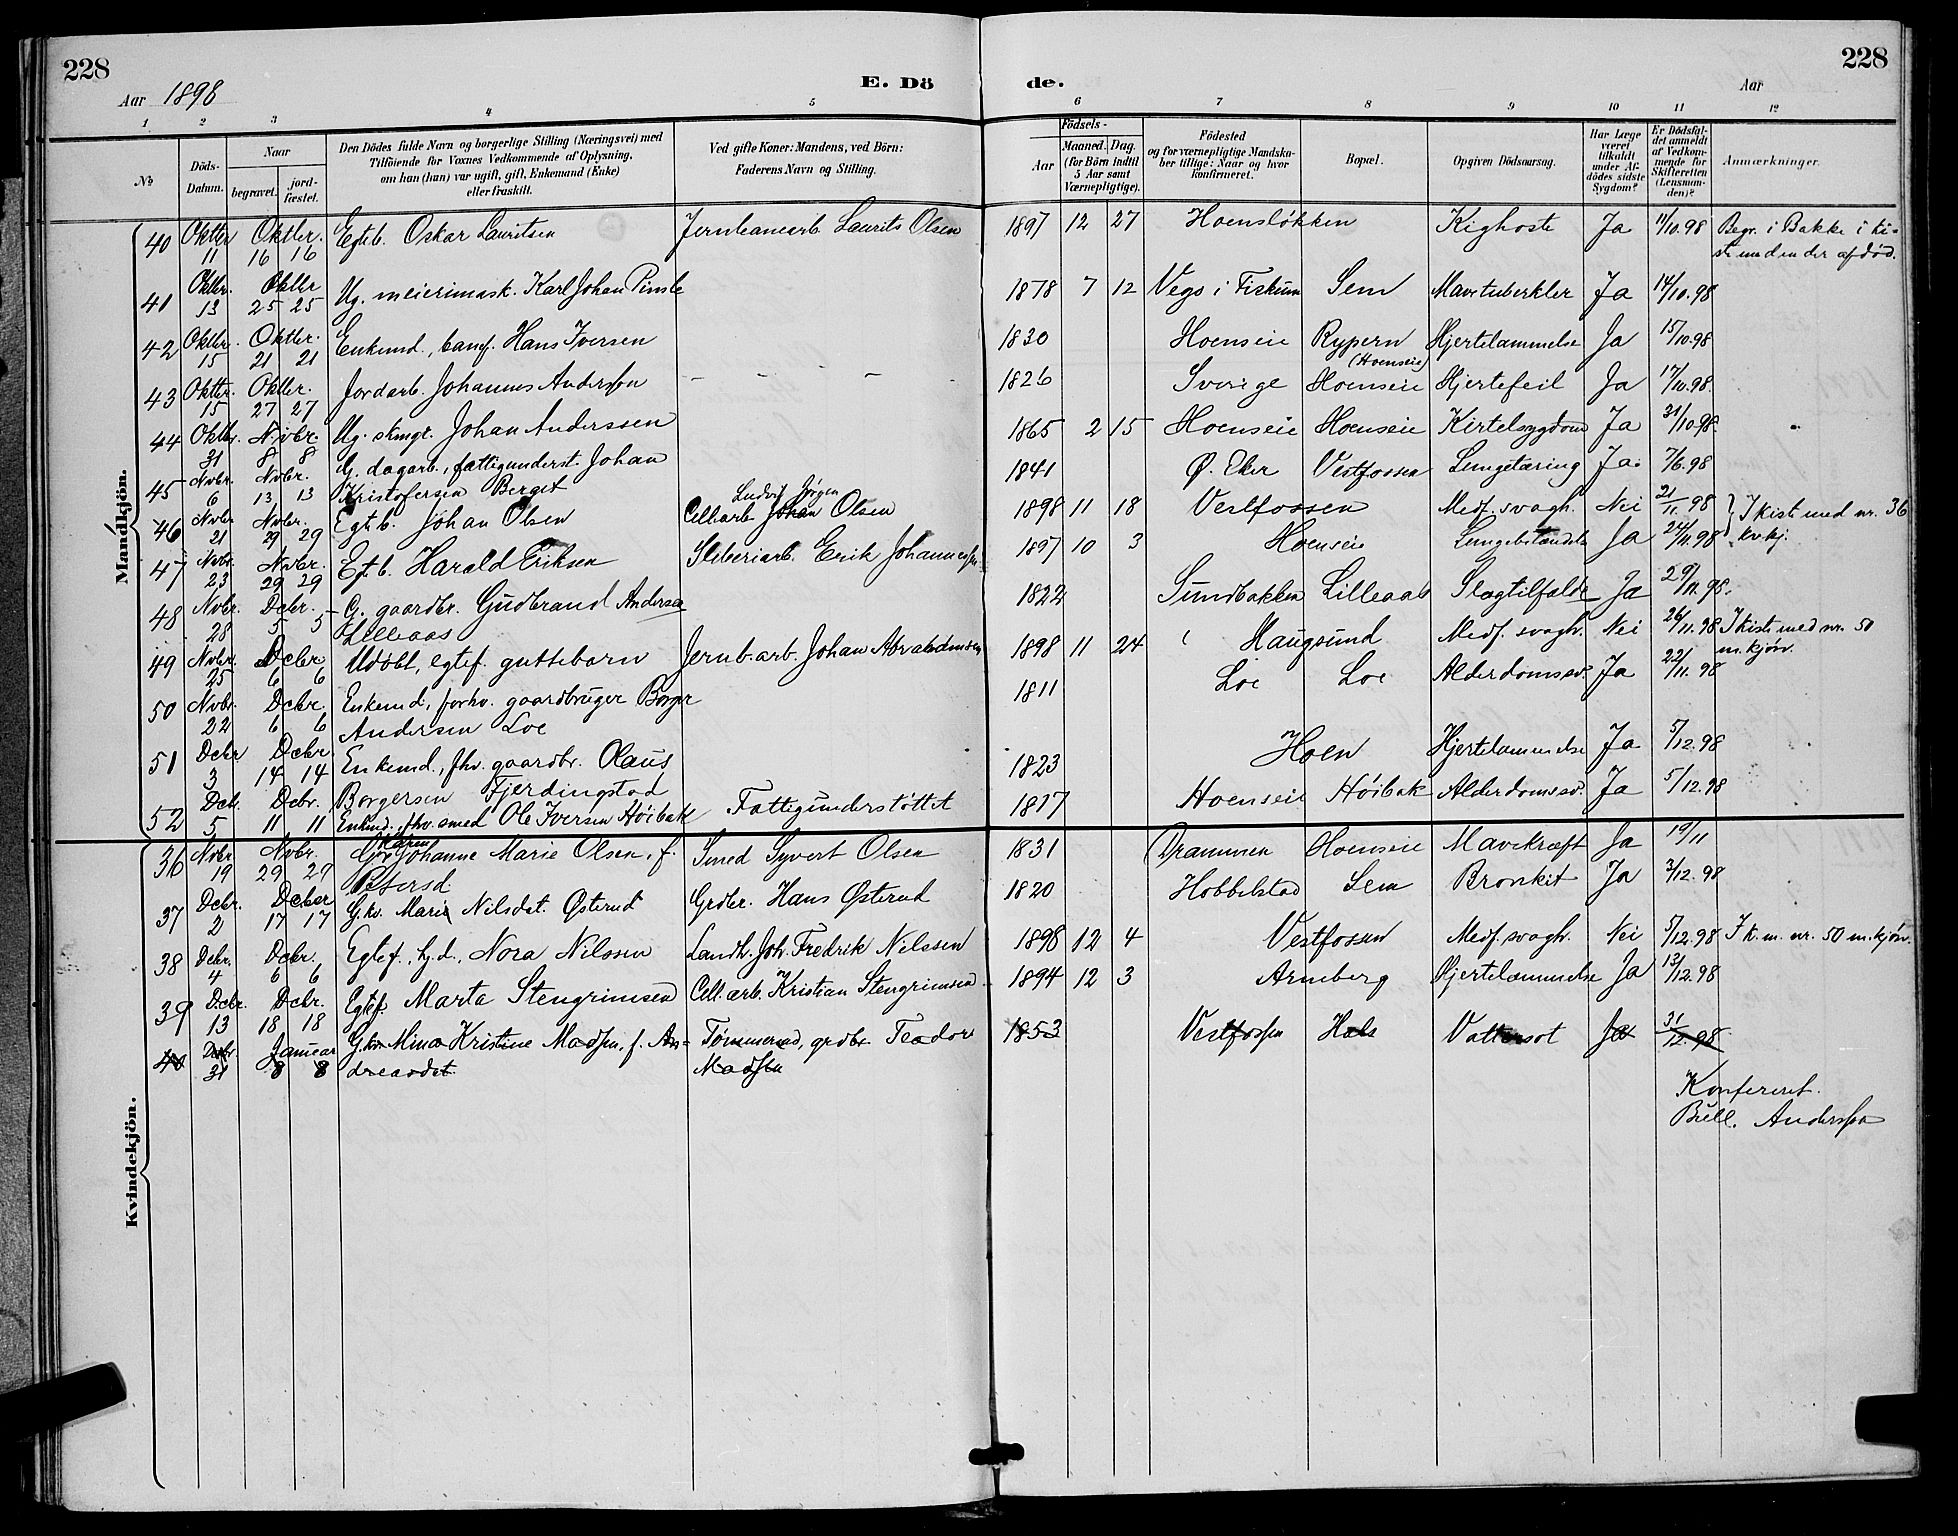 228
Aar 1898
E. Dö de.
Aar
228
1 2 3 4 5 6 7 8 9 10 11 12
No
Döds-Datum.
Naar begravet. jordfæstet.
Den Dödes fulde Navn og borgerlige Stilling (Næringsvei) med
Tilföiende for Voxnes Vedkommende af Oplysning,
om han (hun) var ugift, gift, Enkemand (Enke)
eller fraskilt.
Ved gifte Koner: Mandens, ved Börn:
Faderens Navn og Stilling.
Födsels-
Aar Maaned. Dag.
(for Börn indtil
5 Aar samt
Værnepligtige).
Födested
og for værnepligtige Mandskaber tillige: Naar og hvor
konfirmeret.
Bopæl.
Opgiven Dödsaarsag.
Har Læge
været
tilkaldt
under Afdödes sidste
Sygdom?
Er Dödsfaldet anmeldt
af Vedkommende for
Skifteretten
(Lensmanden)?
Anmærkninger.
Mandkjön.
40 Oktbr 11 Oktbr. 16 16 Egteb. Oskar Lauritsen Jernbanearb. Laurits Olsen 1897 12 27 Hoensløkken Kighoste Ja 11/10.98 Begr. i Bakke i kiste med en der afdød.
41 Oktbr. 13 Oktbr 25 25 Ug. meierimask. Karl Johan Pinsle 1878 7 12 Vego i Fiskum Sem Mavetuberkler Ja 14/10.98
42 Oktbr. 15 Oktbr. 21 21 Enkemd., banef. Hans Iversen 1830 Hoenseie Rypern (Hoenseie) Hjertelammelse Ja 15/10.98
43 Oktbr. 15 Oktbr. 27 27 Jordarb. Johannes Anderssen — — — 1826 Sverige Hoenseie Hjertefeil Ja 17/10.98.
44 Oktbr. 31 Novbr. 8 8 Ug. skmgr. Johan Anderssen 1865 2 15 Hoenseie Hoenseie Kirtelsygdom Ja 31/10.98.
45 Novbr. 6 Novbr. 13 13 G. dagarb., fattigunderst. Johan
Kristofersen Berget 1841 Ø. Eker Vestfossen Lungetæring Ja. 7/6.98
46 Novbr 21 Novbr. 29 29 Egt. b. Johan Olsen Cell.arb. Johan Ludvig Jørgen Olsen 1898 11 18 Vestfossen Medf. svagh. Nei 21/11.98 I kiste med nr. 36 kv.kj.
47 Novbr. 23 Novbr. 29 29 Egt. b. Harald Eriksen Sliberiarb. Erik Johannessen 1897 10 3 Hoenseie Lungebetændelse Ja 24/11.98
48 Novbr. 28 Decbr. 5 5 G. gaardbr. Gudbrand Andersen
Lilleaas 1822 Sundbakken Lilleaas Slagtilfælde Ja 29/11.98.
49 Novbr. 25 Decbr. 6 6 Udøbt, egtef. guttebarn Jernb.arb. Johan Abrahamsen 1898 11 24 Haugsund Medf. svagh. Nei 26/11.98 I kiste med nr. 50 m.kjøn.
50 Novbr. 22 Decbr. 6 6 Enkemd., forhv. gaardbruger Borger
Andersen Loe 1811 Loe Loe Alderdomssv. Ja 22/11.98
51 Decbr 3 Decbr. 14 14 Enkemd., fhv. gaardbr. Olaus
Borgersen Fjerdingstad 1823 Hoen Hjertelammelse Ja 5/12.98
52 Decb. 5 Decbr. 11 11 Enkmd. fhv. smed Ole Iversen Høibak Fattigunderstøttet 1817 Hoenseie Høibak Alderdomssv. Ja 5/12.98
Kvindekjön.
36 Novbr. 19 Novbr. 29 29 G.kv. Karen Johanne Marie Olsen, f.
Petersd. Smed Syvert Olsen 1831 Drammen Hoenseie Mavekræft Ja 19/11
37 Decbr. 2 Decber 17 17 G.kv. Marie Nilsdat. Østerud Grdbr. Hans Østerud 1820 Hobbelstad Sem Bronkit Ja 3/12.98
38 Decbr. 4 Decbr. 6 6 Egtef. hj.d., Nora Nilssen Landh. Joh. Fredrik Nilssen 1898 12 4 Vestfossen Medf. svagh. Nei 5/12.98 I k. m. nr. 50 m.kjøn.
39 Decbr. 13 Decbr. 18 18 Egtef. Marta Stengrimsen Cell. arb. Kristian Stengrimsen 1894 12 3 Arneberg Hjertelammelse Ja 13/12.98
40 Decbr. 31 Januar 8 8 G.kv. Mina Kristine Madsen, f. An-
dreasdat. Tømmermd, grdbr. Teodor
Madsen 1853 Vestfossen Hals Vattersot Ja 31/12.98
Konfereret.
Büll. Anderssen